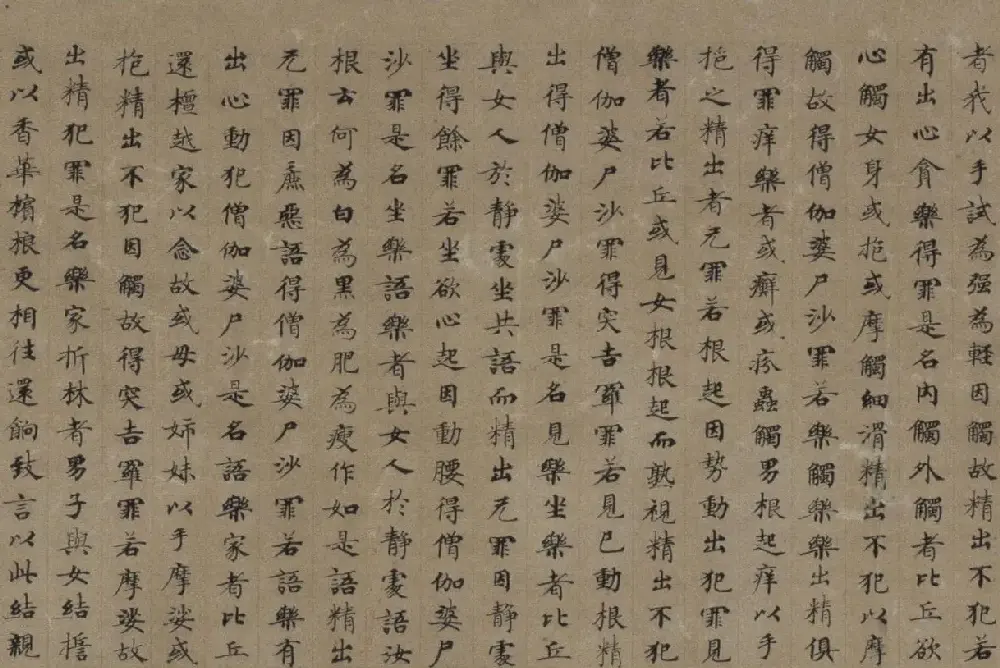 者我以手試為强為軽因觸故精出不犯若
有出心貪樂得罪是名内觸外觸者比丘欲
心觸女身或抱或摩觸細滑精出不犯以摩
觸故得僧伽婆尸沙罪若樂觸樂出精俱
得罪痒樂者或癬或疥蟲觸男根起痒以手
抱之精出者无罪若根起因勢動出犯罪見
樂者若比丘或見女根根起而熟視精出不犯
僧伽婆尸沙罪得突吉羅罪若見已動根精
出得僧伽婆尸沙罪是名見樂坐樂者比丘
與女人於静處坐共語而精出无罪因静處
坐得餘罪若坐欲心起因動腰得僧伽婆尸
沙罪是名坐樂語樂者與女人於静處語汝
根云何為白為黑為肥為瘦作如是語精出
无罪因麁惡語得僧伽婆尸沙罪若語樂有
出心動犯僧伽婆尸沙是名語樂家者比丘
還檀越家以念故或母或姊妹以手摩娑或
抱精出不犯因觸故得突吉羅罪若摩娑故
出精犯罪是名樂家折林者男子與女結誓
或以香華檳榔更相往還餉致言以此結親